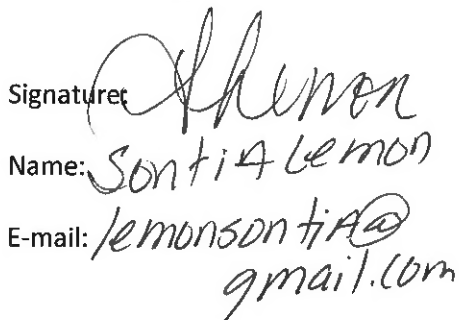 Signature:
Name: SontiA Lemon
E-mail: lemonsontiA@
gmail.com